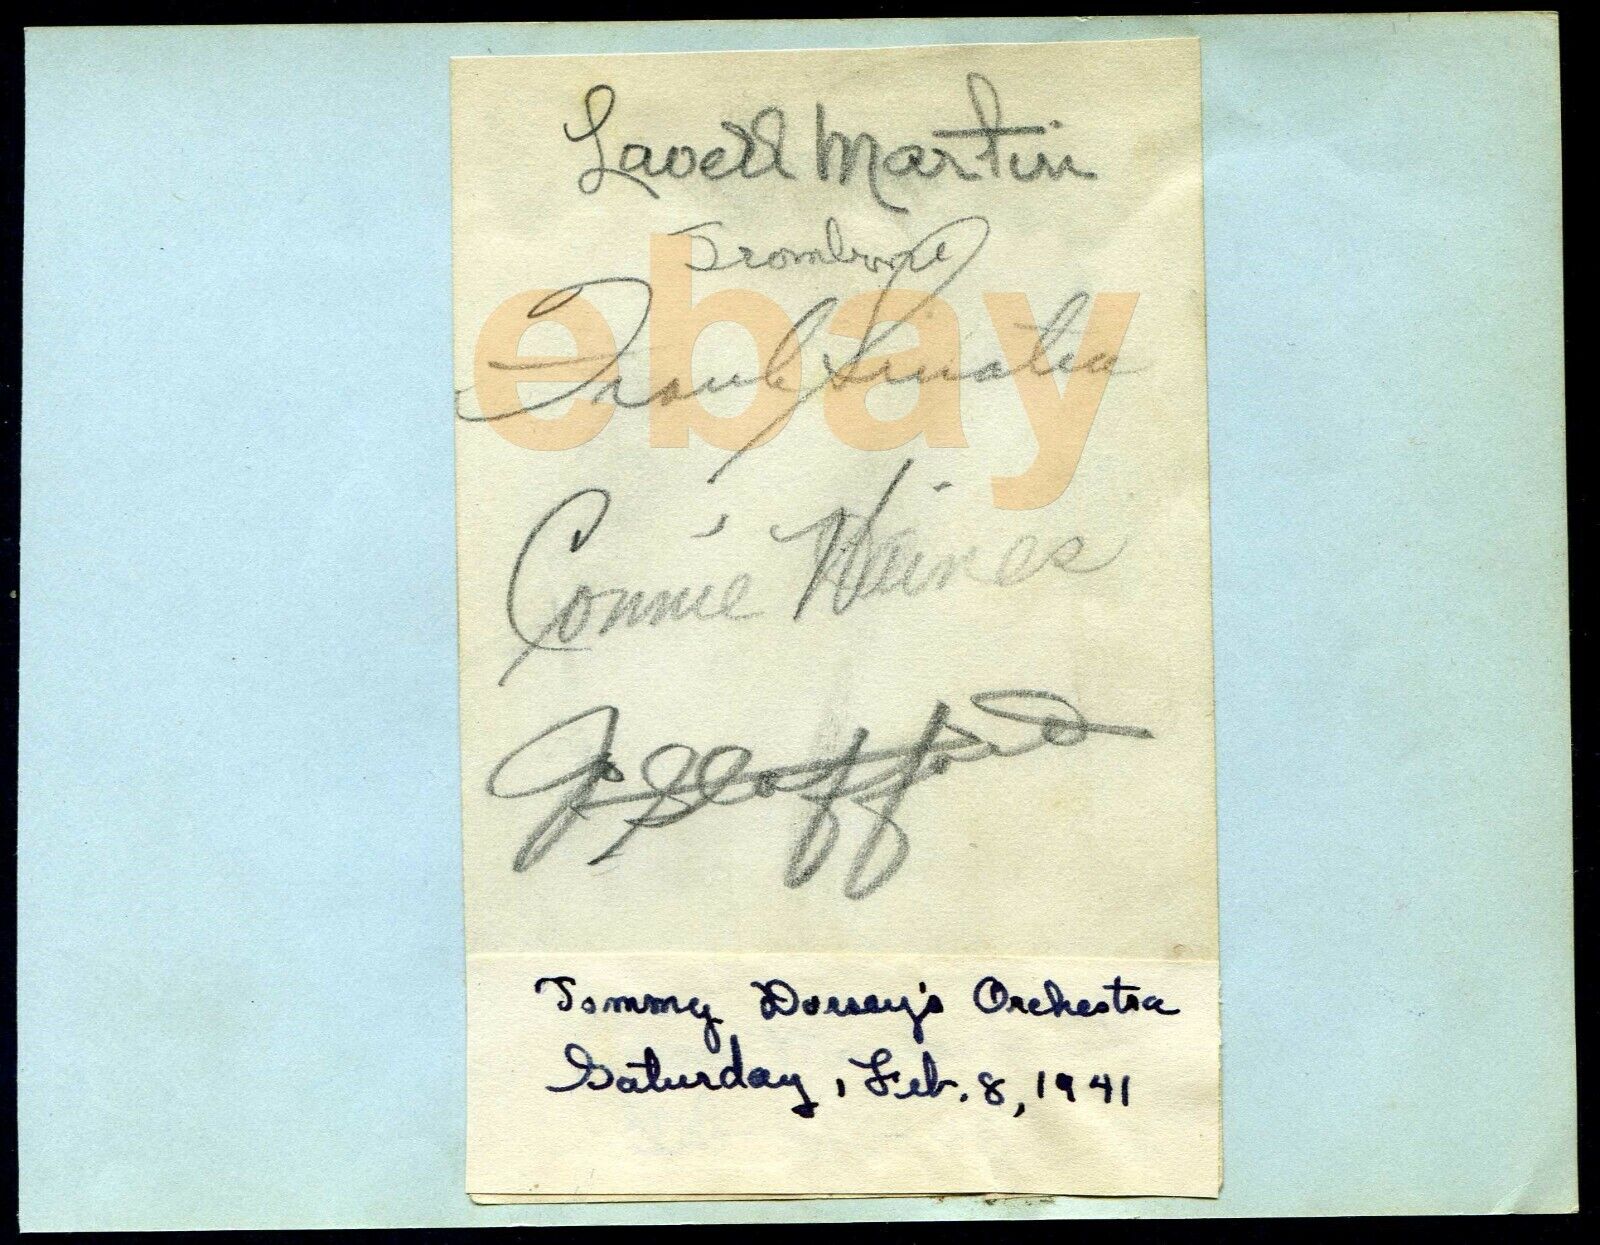 Lavell Martin
Trombone
Frank Sinatra
Connie Haines
Jo Stafford
Tommy Dorsey's Orchestra
Saturday, Feb. 8, 1941
ebay